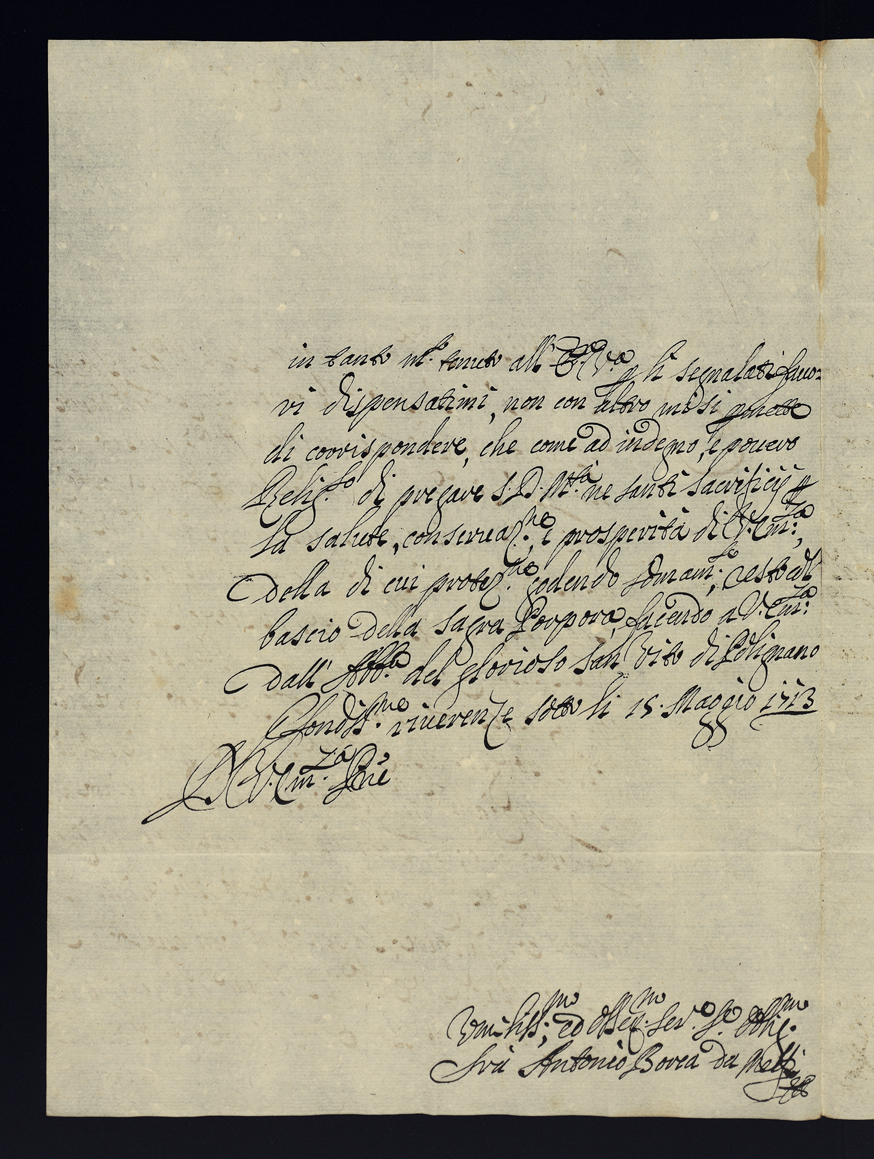 in tanto m.to tenuto all' E. V.a p li segnalati favo-
ri dispensatimi, non con altro mi si permette
di corrispondere, che come ad indegno, e povero
Relig.so di pregare S. D. M.tà ne santi sacrificij p
la salute, conservaz.ne, e prosperità di V. Em.za,
della di cui protez.ne godendo somam.te, resto al
bascio della sagra Porpora, facendo a V. Em.za
dall' Abb.a del glorioso San Vito di Polignano
Profondiss.me riverenze sotto li 15. Maggio 1713
D. V. Em.za Pne
Umiliss.mo, ed Osseq.mo Ser.e S.o Oblig.mo
Frà Antonio Bovea da